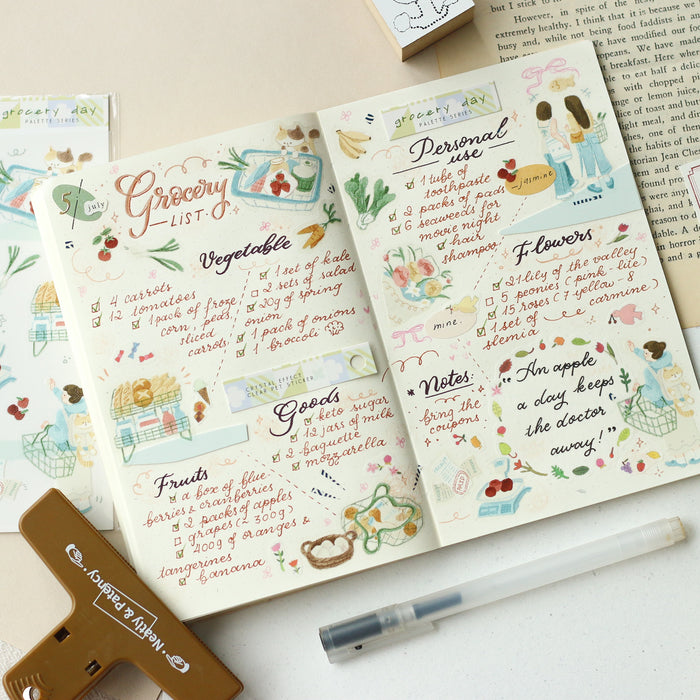 grocery day
PALETTE SERIES
5 / july
Grocery
LIST
Vegetable
4 carrots
12 tomatoes
1 pack of froze
corn, peas,
sliced
carrots
1 set of kale
2 sets of salad
20g of spring
onion
1 pack of onions
1 broccoli
CRYSTAL EFFECT
CLEAR PET STICKER
Goods
keto sugar
12 jars of milk
2 baguette
mozzarella
Fruits
a box of blue
berries & cranberries
2 packs of apples
grapes (~300g)
400g of oranges &
tangerines
banana
grocery day
PALETTE SERIES
Personal
use
1 tube of
toothpaste
2 packs of pads
6 seaweeds for
movie night
hair
shampoo
-jasmine
mine
Flowers
21 lily of the valley
5 peonies (pink-lite)
15 roses (7 yellow-8
carmine)
1 set of
slemia
*Notes:
bring the
coupons
"An apple
a day keeps
the doctor
away!"
Neatly & Patency
However, in spite of the
extremely busy. I think that it is because we